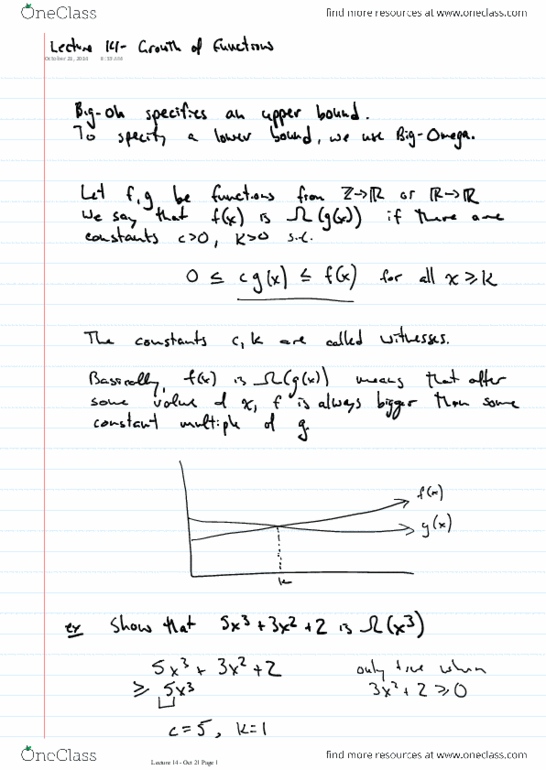 OneClass
find more resources at www.oneclass.com
Lecture 14 - Growth of Functions
Big-Oh specifies an upper bound.
To specify a lower bound, we use Big-Omega.
Let f, g be functions from ℤ→ℝ or ℝ→ℝ
We say that f(x) is Ω(g(x)) if there are
constants c>0, k>0 s.t.
0 ≤ cg(x) ≤ f(x) for all x ≥ k
The constants c, k are called witnesses.
Basically, f(x) is Ω(g(x)) means that after
some value of x, f is always bigger than some
constant multiple of g.
f(x)
g(x)
k
ex Show that 5x³ + 3x² + 2 is Ω(x³)
5x³ + 3x² + 2 only true when
≥ 5x³ 3x² + 2 ≥ 0
c = 5, k = 1
Lecture 14 - Oct 21 Page 1
OneClass
find more resources at www.oneclass.com